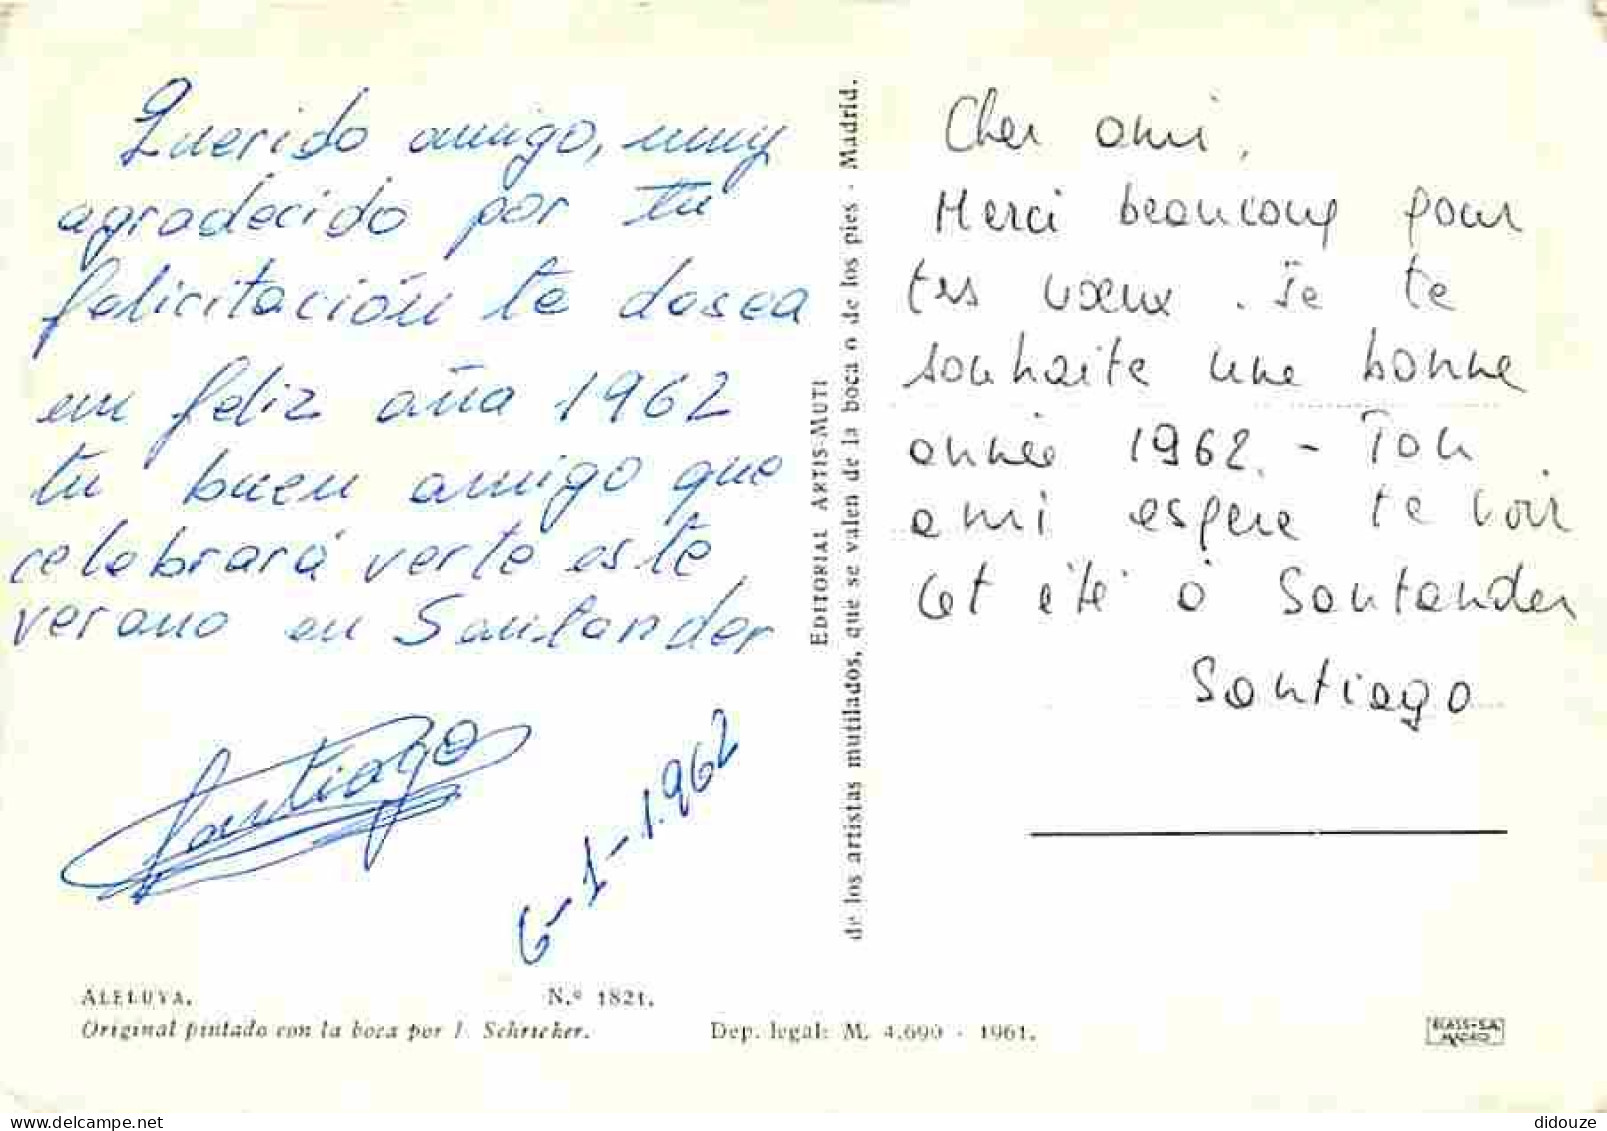 Querido amigo, muy
agradecido por tu
felicitación te desea
un feliz año 1962
tu buen amigo que
celebrará verte este
verano en Santander
Santiago
6-1-1.962
ALELUYA.
N.º 1821.
Original pintado con la boca por I. Schricker.
Dep. legal: M. 4.690 - 1961.
EDITORIAL ARTIS-MUTI
de los artistas mutilados, que se valen de la boca o de los pies - Madrid.
Cher ami,
Merci beaucoup pour
tes vœux. Je te
souhaite une bonne
année 1962. - Ton
ami espère te voir
cet été à Santander
Santiago
MADRID
www.delcampe.net
didouze